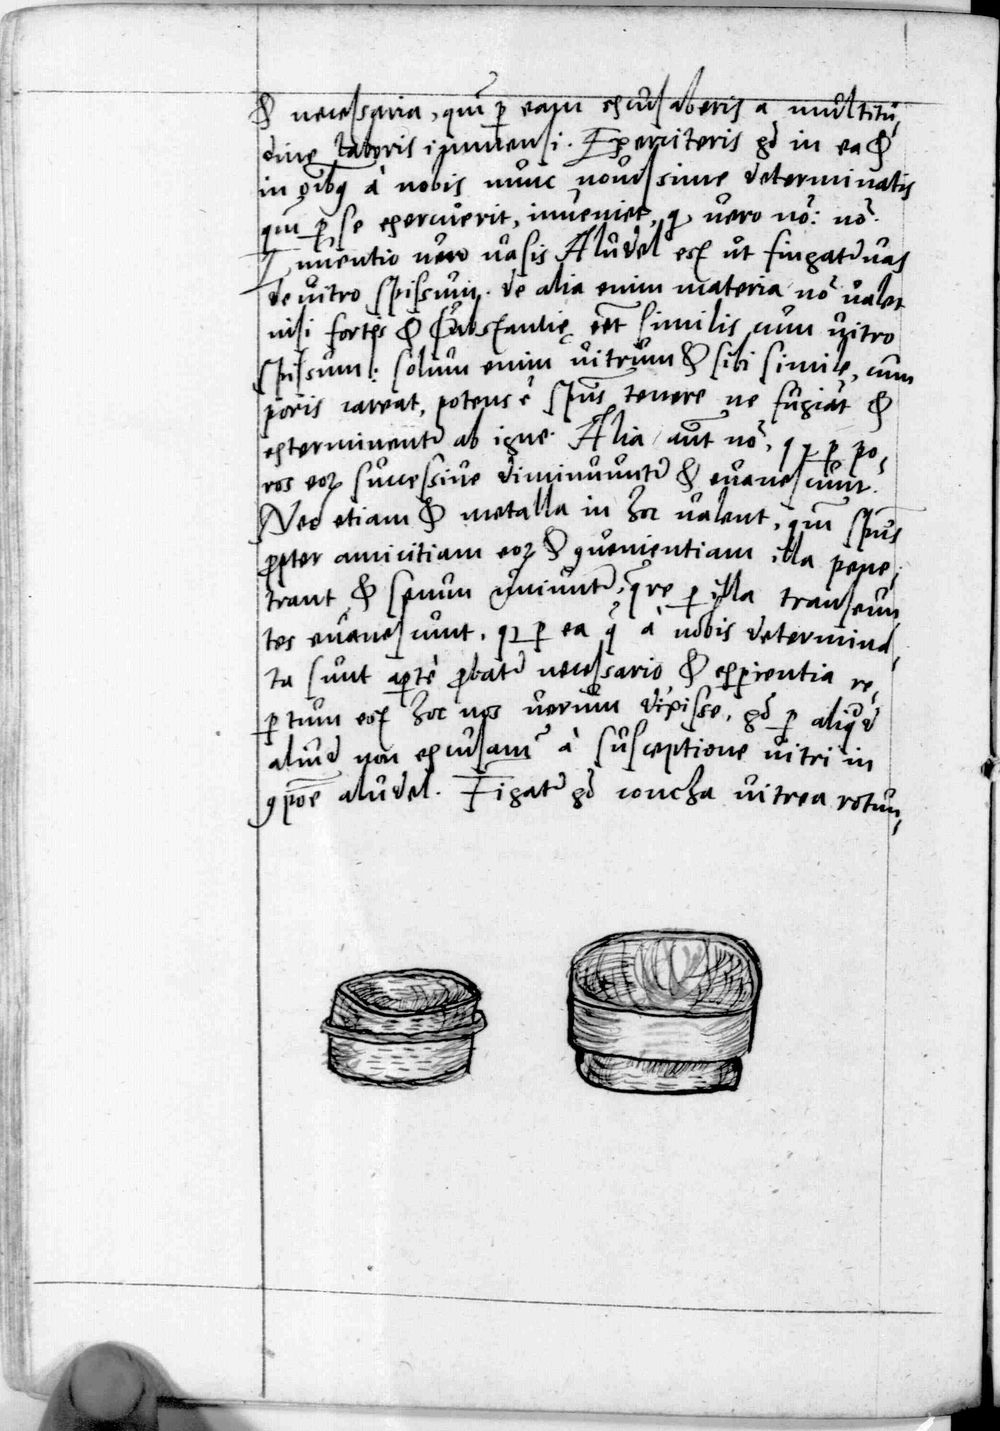 & necessaria, qm̄ p eam excusaberis a multitu,
dine laboris immensi. Exerciteris gͦ in ea &
in oībꝯ à nobis nunc novissime determinatis
qui p se exercuerit, inveniet, q vero nō: nō.
Inventio vero vasis Aludel est ut fingatr vas
de vitro spissum. de alia enim materia nō valet
nisi fortis & substantie eēt similis cum vitro
spissum: solum enim vitrum & sibi simile, cum
poris careat, potens ē spūs tenere ne fugiāt &
exterminentr ab igne. Alia aūt nō, qꝛ p po,
ros eoꝝ successive diminuuntr & evanescunt.
Nec etiam & metalla in hoc valent, qm̄ spūs
ꝓpter amicitiam eoꝝ & ꝯvenientiam illa pene,
trant & secum uniuntr, qre p illa transeun,
tes evanescunt, qꝛ p ea q̄ à nobis determina,
ta sunt aptè ꝓbatr necessario & expientia re,
ptum est hoc nos verum dixisse, gͦ p aliqd
aliud non excusamr à susceptione vitri in
ꝯpōe aludel. Figatr gͦ concha vitrea rotun,